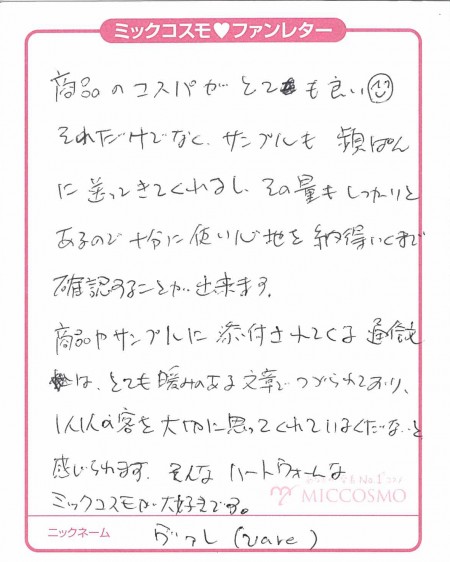 ミックコスモ♥ファンレター
商品のコスパがとても良い
それだけでなく、サンプルも 頻ぱん
に送ってきてくれるし、その量もしっかりと
あるので十分に使い心地を納得いくまで
確認することが出来ます。
商品やサンプルに添付されてくる通信
は、とても暖みのある文章でつづられており、
1人1人の客を大切に思ってくれているんだなぁと
感じられます。そんなハートウォームな
ミックコスモが大好きです。
MICCOSMO
ニックネーム
ヴァレ (vare)